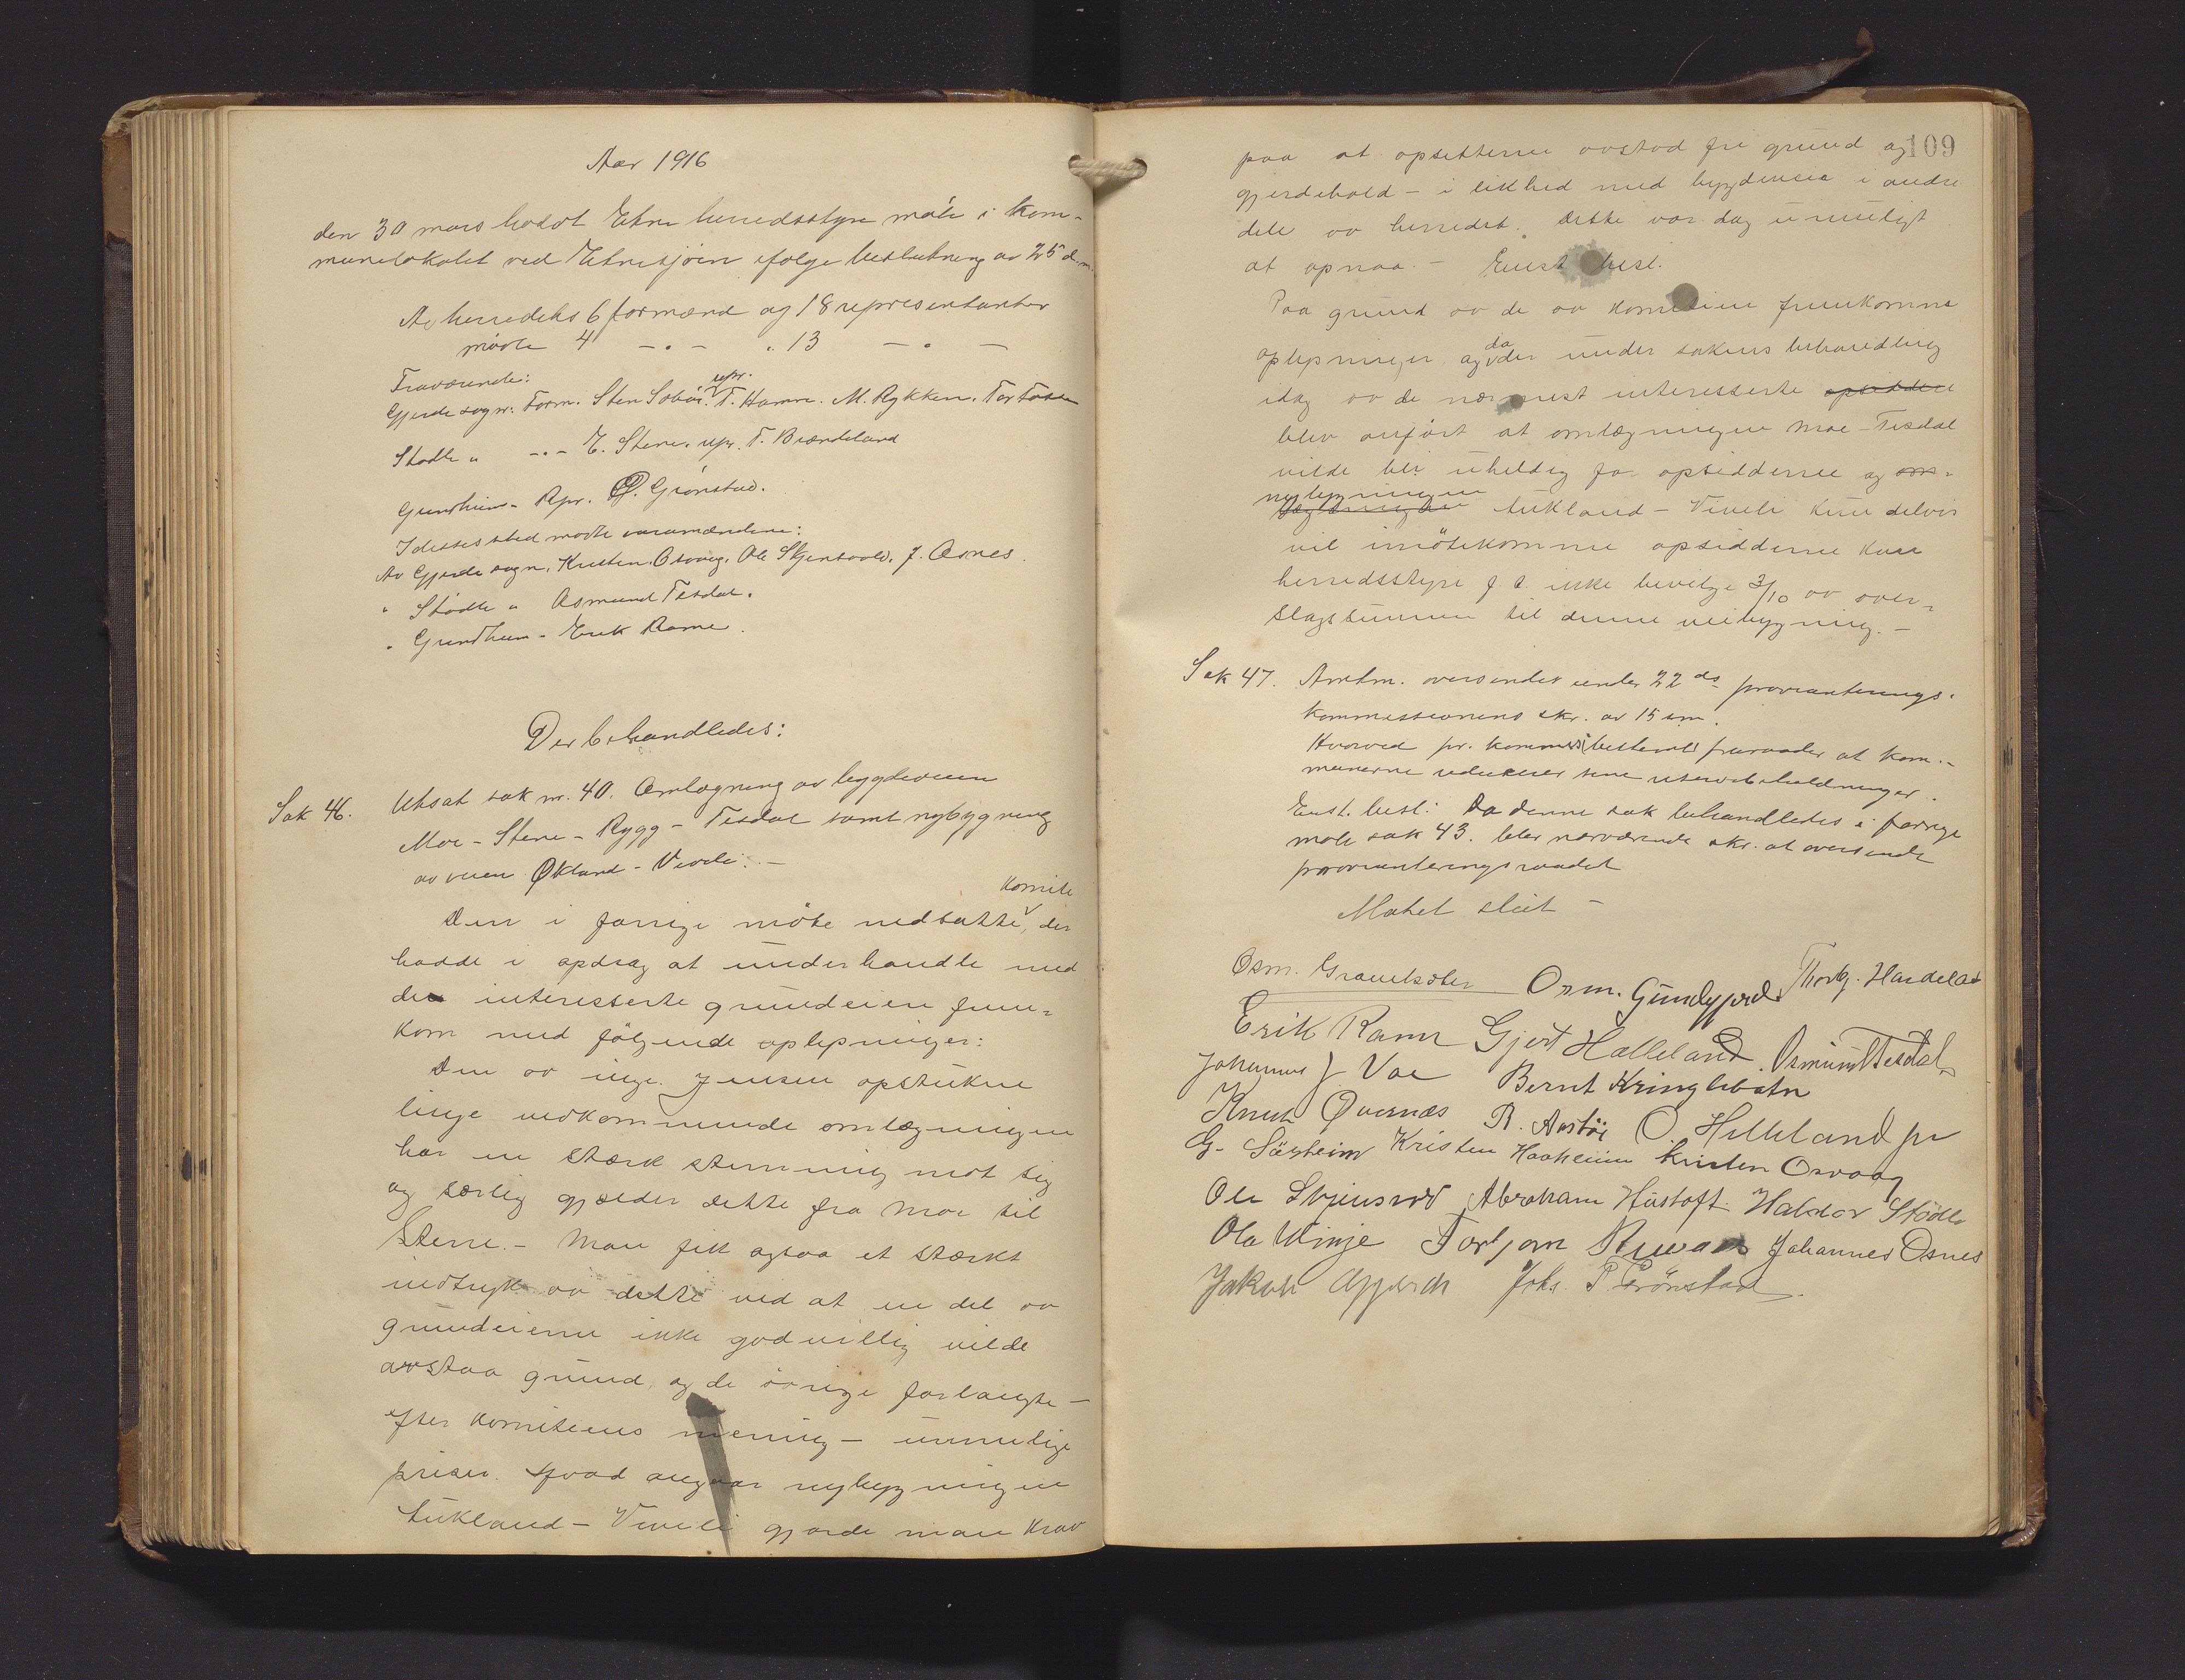 Aar 1916
den 30 mars holdt Etne herredsstyre møte i kom-
munelokalet ved Etnesjøen ifølge beslutning av 25 d.m.
Av herredets 6 formænd og 18 representanter
møtte 4 - " - " 13 - " -
Fraværende:
Gjerde sogn: Form. Sten Sebøe. repr. T. Hamre. M. Rykken. Tor Tosse
Stødle " - " - E. Stene. repr. T. Brændeland
Grindheim - Repr. P. Grønstad.
I dettes sted møtte varamændene:
Av Gjerde sogn. Kristen Osvaag. Ole Skjensvold. J. Osnes.
" Stødle " Osmund Tesdal.
" Grindheim - Erik Rame.
Der behandledes:
Sak 46. Utsat sak nr. 40. Omlægning av bygdeveien
Moe - Stene - Rygg - Tesdal samt nybygning
av veien Økland - Viveli. -
Den i forrige møte nedsatte komite, der
hadde i opdrag at underhandle med
de interesserte grundeiere frem=
kom med følgende oplysninger:
Den av ing. Jensen opstukne
linje vedkommende omlægningen
har en stærk stemning mot sig
og særlig gjælder dette fra Moe til
Stene. - Man fik ogsaa et stærkt
indtryk av dette ved at en del av
grundeierne ikke godvillig vilde
avstaa grund, og de øvrige forlangte -
efter komiteens mening - urimelige
priser. Hvad angaar nybygningen
Aukland - Viveli gjorde man krav
109
paa at opsitterne avstod fri grund og
gjerdehold - i likhed med bygdeveie i andre
dele av herredet. Dette var dog umuligt
at opnaa. - Enst. besl.
Paa grund av de av komiteen fremkomne
oplysninger og da der under sakens behandling
idag av de nærmest interesserte opsiddere
blev anført at omlægningen Moe - Tesdal
vilde bli uheldig for opsidderne og om=
nybygningen
lægningen Aukland - Viveli kun delvis
vil imøtekomme opsidderne kan
herredsstyre f. t. ikke bevilge 3/10 av over=
slagssummen til denne veibygning. -
Sak 47. Amtm. oversender under 22 ds provianterings-
kommissionens skr. av 15 s.m.
Hvorved pr. komm. bestemt fraraader at kom-
munerne reducerer sine reservebeholdninger.
Enst. besl: Da denne sak behandledes i forrige
møte sak 43. blev nærværende skr. at oversende
provianteringsraadet
Møtet slut -
Osm. Gravelsæter Osm. Gundegjerd Thorbj. Handeland
Erik Rame Gjert Hålleland. Osmund Tesdal
Johannes J Vae Bernt Kringlebotn
Knut Øvernæs R. Aastøe O. Helleland jr
G. Särheim Kristen Haaheim Kristen Osvaag
Ole Skjensvold Abraham Hustoft Haldor Stødle
Ola Vinje Torbjørn Johannes Osnes
Jakob Gjerde Johs. P. Grönstad